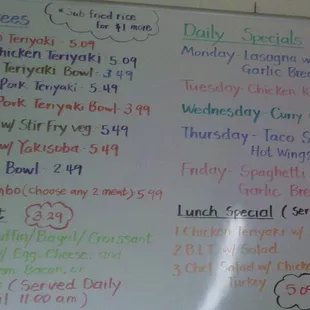 * Sub fried rice
for $1 more
Teriyaki - 5.09
Chicken Teriyaki 5.09
Teriyaki Bowl - 3.49
Pork Teriyaki - 5.49
Pork Teriyaki Bowl 3.99
w/ Stir Fry veg. 5.49
w/ Yakisoba - 5.49
Bowl - 2.49
(choose any 2 meat) 5.99
3.29
/Bagel/Croissant
w/ Egg, Cheese, and
Bacon, or
(Served Daily
11:00 am)
Daily Specials
Monday Lasagna w/
Garlic
Tuesday Chicken
Wednesday - Curry
Thursday - Taco
Hot Wings
Friday - Spaghetti
Garlic
Lunch Special (
1 Chicken Teriyaki w/
2 B.L.T w/ Salad
3 Chef Salad w/ Chicken
Turkey